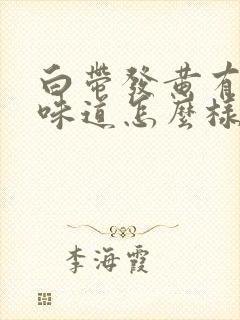 白帶發黄有
味道怎麽樣
李海霞